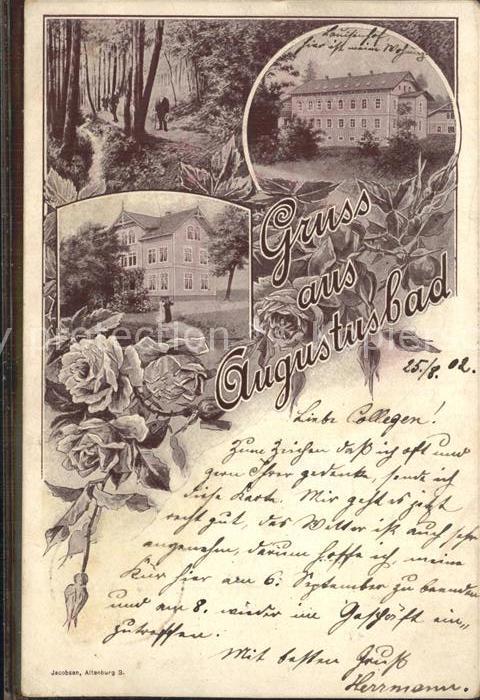 Lausenhof
hier ist meine Wohnung
Gruss
aus
Augustusbad
25/8. 02.
Liebe Collegen!
Zum Zeichen daß ich oft und
gern Ihrer gedenke, sende ich
diese Karte. Mir geht es jetzt
recht gut, das Wetter ist auch sehr
angenehm, darum hoffe ich, meine
Kur hier am 6. September zu beenden
und am 8. wieder im Geschäft ein-
zutreffen.
Mit besten Gruß
Herrmann.
Jacobsen, Altenburg S.
y protection